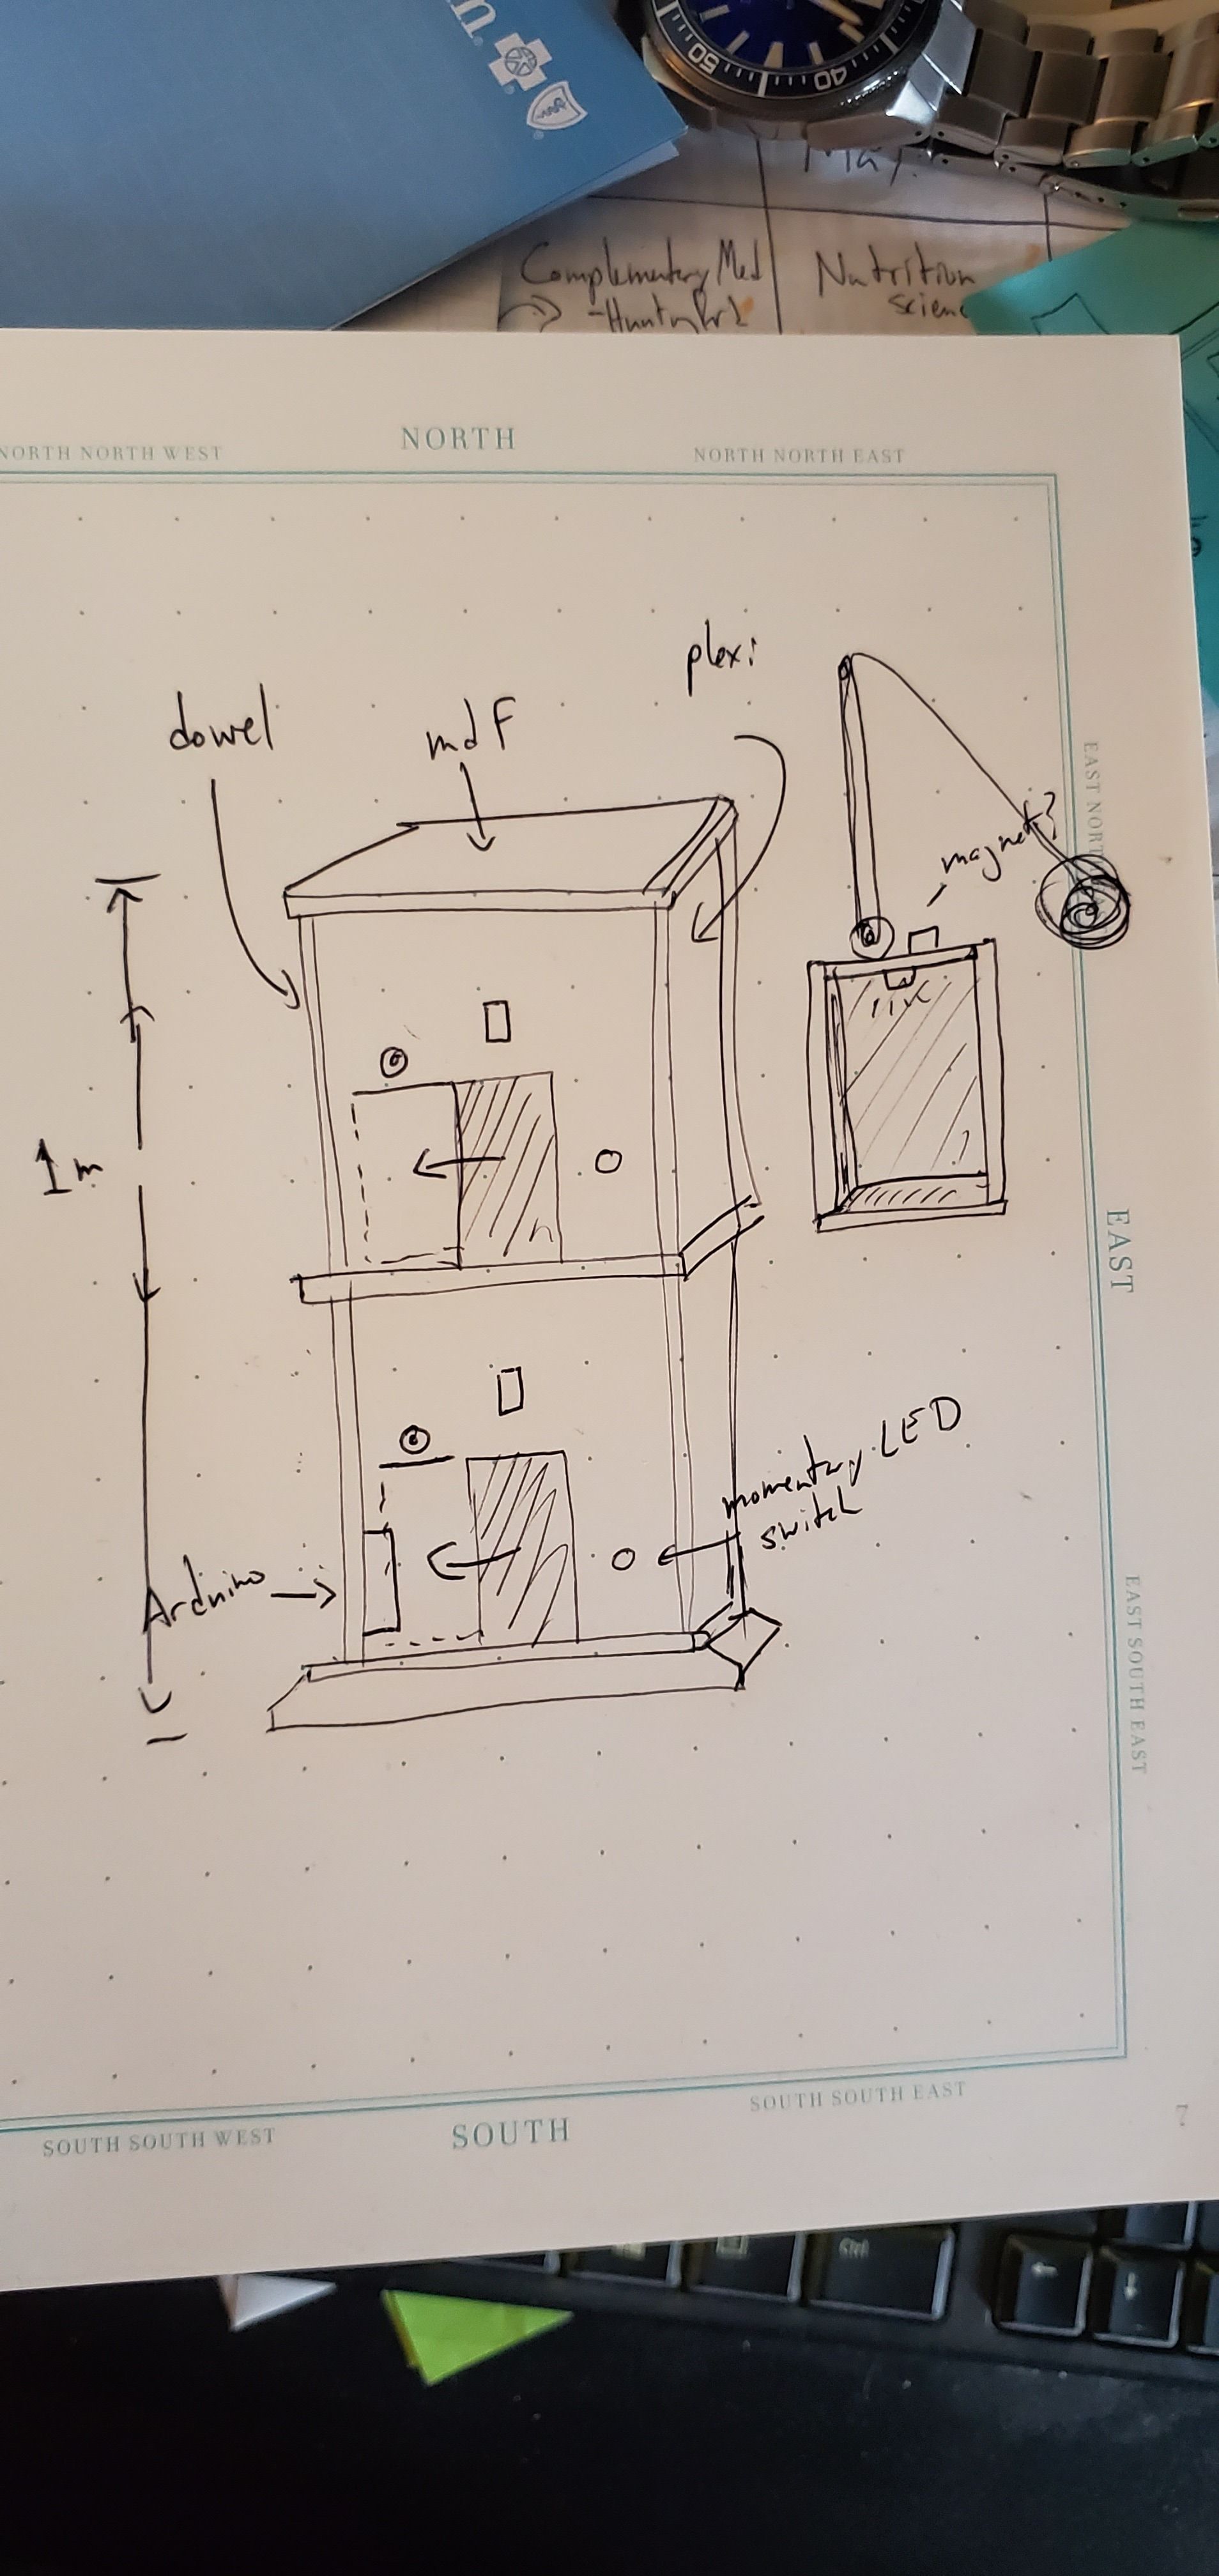 50
40
May.
Complementary Med
Nutrition
science
NORTH NORTH WEST
NORTH
NORTH NORTH EAST
plexi
dowel
mdf
EAST NORT
magnet?
1m
EAST
momentary LED
switch
Arduino
EAST SOUTH EAST
SOUTH SOUTH EAST
SOUTH SOUTH WEST
SOUTH
7
Ctrl
←
↓